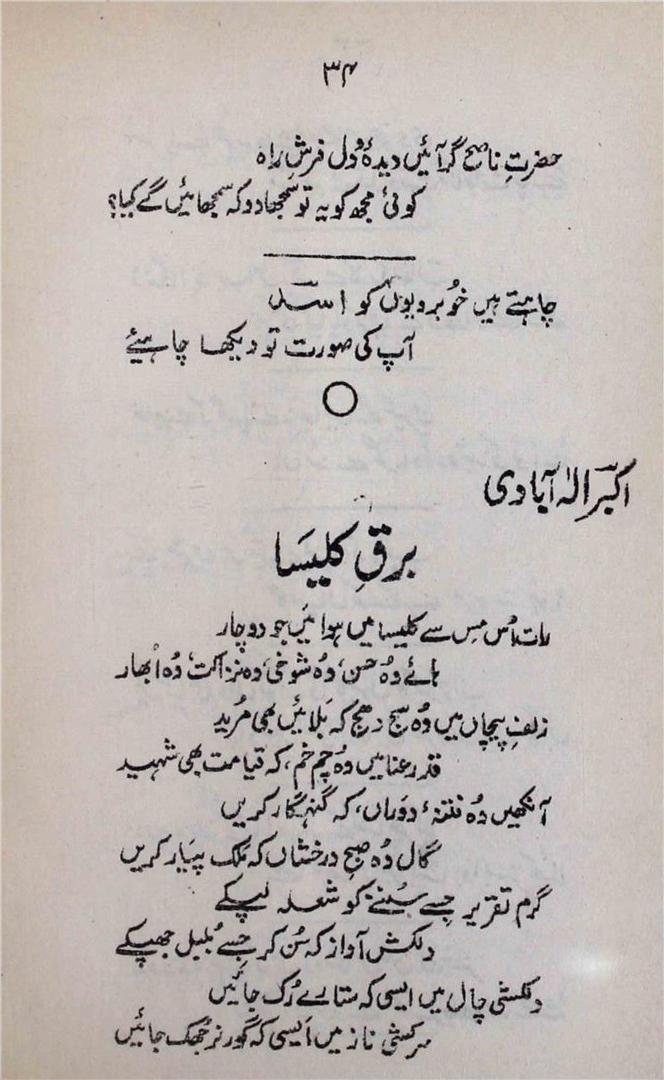 ۳۴
حضرتِ ناصح گر آئیں دیدۂ و دل فرشِ راہ
کوئی مجھ کو یہ تو سمجھا دو کہ سمجھائیں گے کیا؟
چاہتے ہیں خُوبرویوں کو اسؔد
آپ کی صورت تو دیکھا چاہیئے
اکبرؔ الٰہ آبادی
برقِ کلیسَا
رات اُس مِس سے کلیسا میں ہوا مَیں جو دوچار
ہائے وُہ حسن، وُہ شوخی، وُہ نزاکت، وُہ اُبھار
زلفِ پیچاں میں وُہ سج دھج کہ بَلائیں بھی مُرید
قدِ رعنا میں وُہ چم خم، کہ قیامت بھی شہید
آنکھیں وُہ فتنۂ دَوراں، کہ گنہگار کریں
گال وُہ صبحِ درخشاں کہ مَلک پیَار کریں
گرم تقریر جسے سُننے کو شعلہ لپکے
دلکش آواز کہ سُن کر جسے بُلبل جھپکے
دلکشی چال میں ایسی کہ ستارے رُک جائیں
سرکشی ناز میں اَیسی کہ گورنر جُھک جائیں